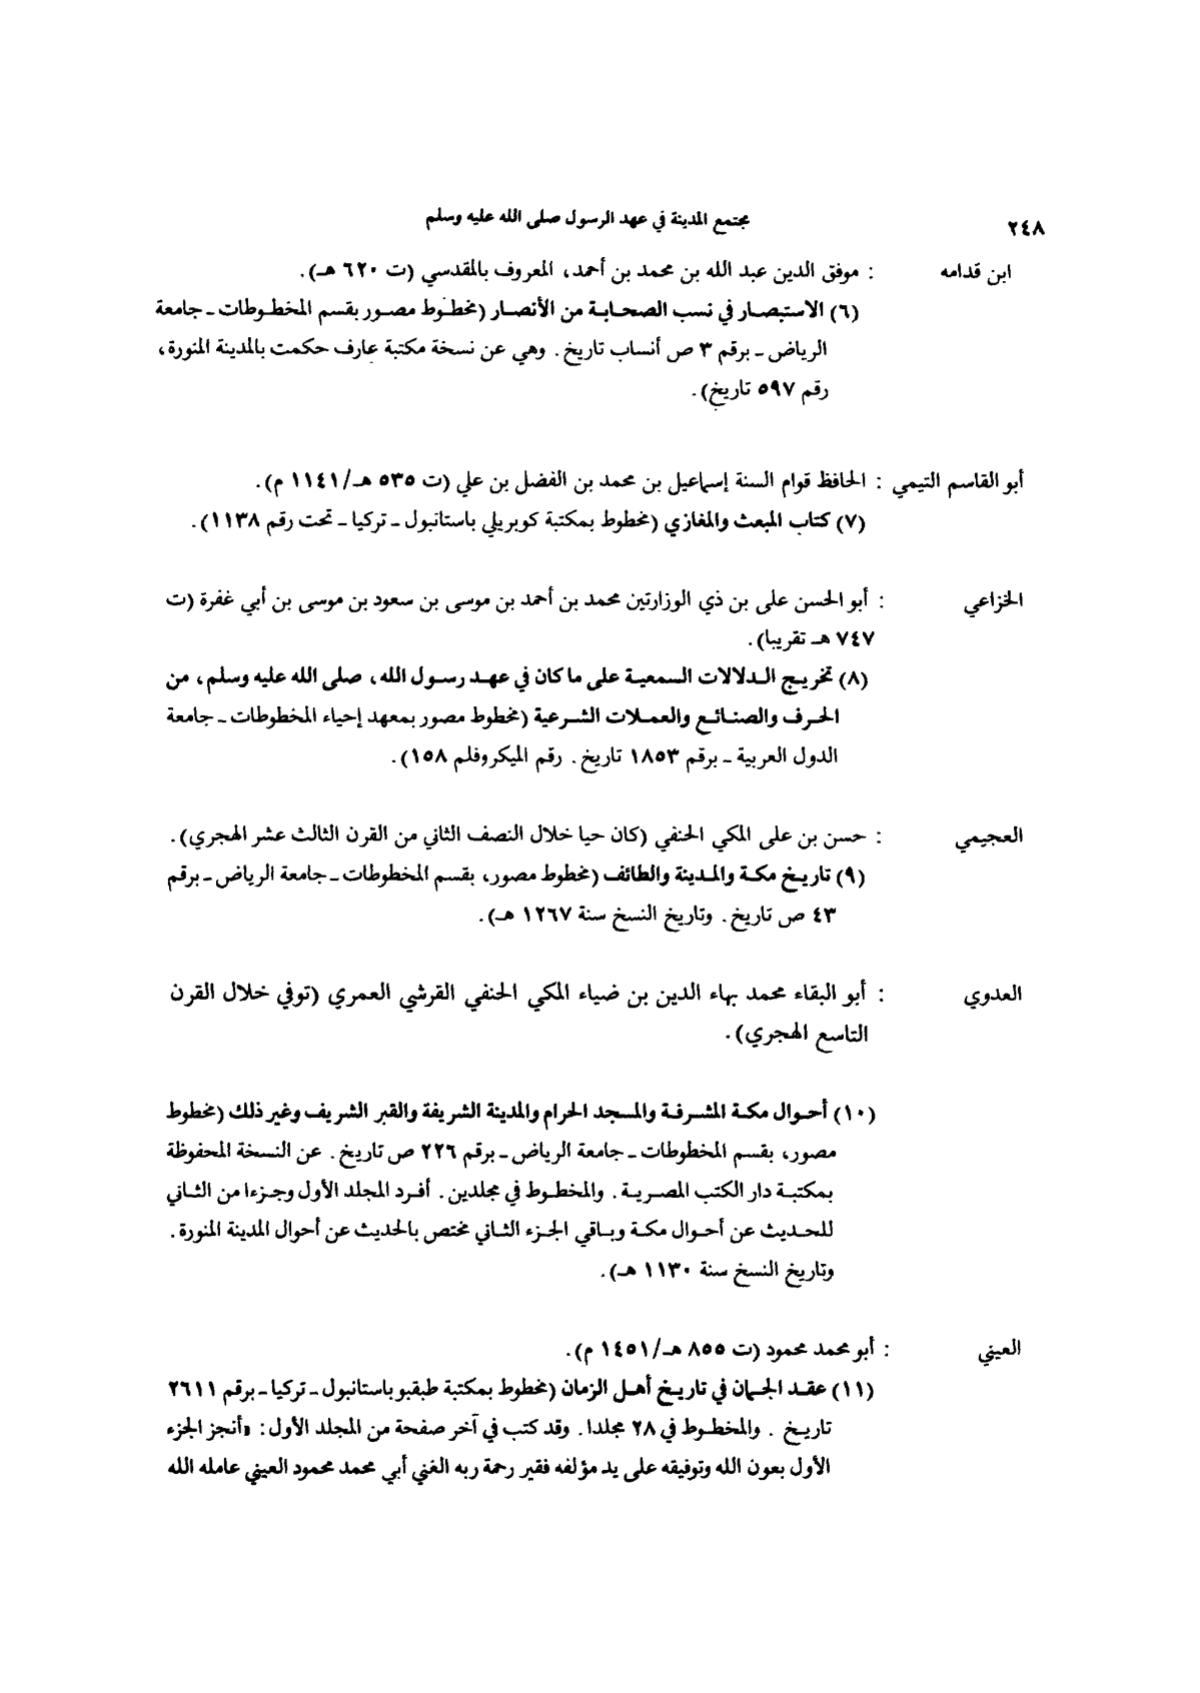 ٢٤٨
مجتمع المدينة في عهد الرسول صلى الله عليه وسلم
ابن قدامه : موفق الدين عبد الله بن محمد بن أحمد، المعروف بالمقدسي (ت ٦٢٠ هـ).
(٦) الاستبصار في نسب الصحابة من الأنصار (مخطوط مصور بقسم المخطوطات ـ جامعة
الرياض ـ برقم ٣ ص أنساب تاريخ. وهي عن نسخة مكتبة عارف حكمت بالمدينة المنورة،
رقم ٥٩٧ تاريخ).
أبو القاسم التيمي : الحافظ قوام السنة إسماعيل بن محمد بن الفضل بن علي (ت ٥٣٥ هـ/١١٤١ م).
(٧) كتاب المبعث والمغازي (مخطوط بمكتبة كوبريلي باستانبول ـ تركيا ـ تحت رقم ١١٣٨).
الخزاعي : أبو الحسن على بن ذي الوزارتين محمد بن أحمد بن موسى بن سعود بن موسى بن أبي غفرة (ت
٧٤٧ هـ تقريبا).
(٨) تخريج الدلالات السمعية على ما كان في عهد رسول الله، صلى الله عليه وسلم، من
الحرف والصنائع والعملات الشرعية (مخطوط مصور بمعهد إحياء المخطوطات ـ جامعة
الدول العربية ـ برقم ١٨٥٣ تاريخ. رقم الميكروفلم ١٥٨).
العجيمي : حسن بن على المكي الحنفي (كان حيا خلال النصف الثاني من القرن الثالث عشر الهجري).
(٩) تاريخ مكة والمدينة والطائف (مخطوط مصور، بقسم المخطوطات ـ جامعة الرياض ـ برقم
٤٣ ص تاريخ. وتاريخ النسخ سنة ١٢٦٧ هـ).
العدوي : أبو البقاء محمد بهاء الدين بن ضياء المكي الحنفي القرشي العمري (توفي خلال القرن
التاسع الهجري).
(١٠) أحوال مكة المشرفة والمسجد الحرام والمدينة الشريفة والقبر الشريف وغير ذلك (مخطوط
مصور، بقسم المخطوطات ـ جامعة الرياض ـ برقم ٢٢٦ ص تاريخ. عن النسخة المحفوظة
بمكتبة دار الكتب المصرية. والمخطوط في مجلدين. أفرد المجلد الأول وجزءا من الثاني
للحديث عن أحوال مكة وباقي الجزء الثاني مختص بالحديث عن أحوال المدينة المنورة.
وتاريخ النسخ سنة ١١٣٠ هـ).
العيني : أبو محمد محمود (ت ٨٥٥ هـ/١٤٥١ م).
(١١) عقد الجمان في تاريخ أهل الزمان (مخطوط بمكتبة طبقبو باستانبول ـ تركيا ـ برقم ٢٦١١
تاريخ. والمخطوط في ٢٨ مجلدا. وقد كتب في آخر صفحة من المجلد الأول: «أنجز الجزء
الأول بعون الله وتوفيقه على يد مؤلفه فقير رحمة ربه الغني أبي محمد محمود العيني عامله الله